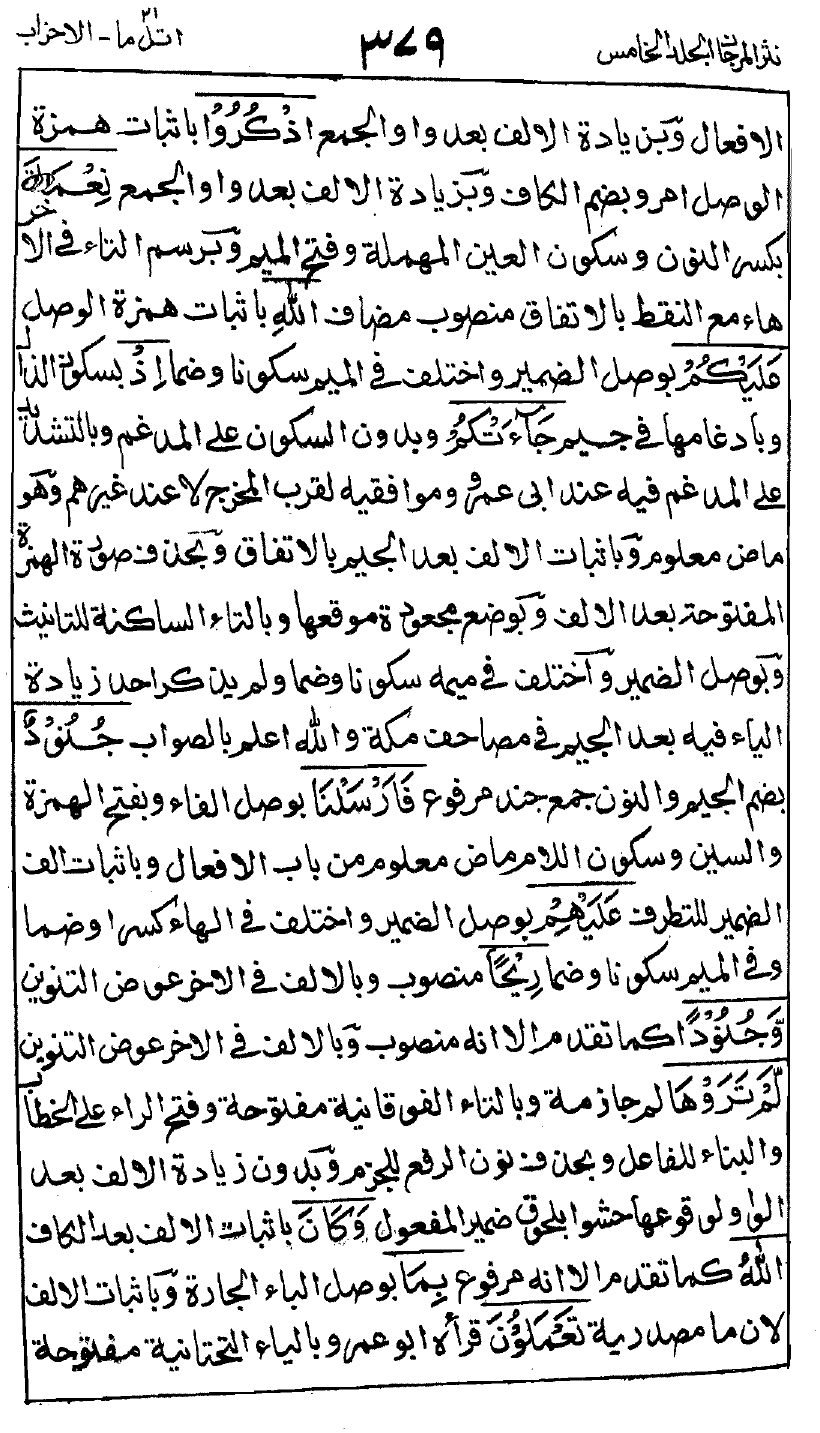 نثر المرجان المجلد الخامس ٣٧٩ اتل ما ٢١ - الاحزاب
الافعال وَبزيادة الالف بعد واو الجمع اذْكُرُوْا باثبات همزة
الوصل امر وبضم الكاف وَبزيادة الالف بعد واو الجمع نِعْمَةَ
بكسر النون وسكون العين المهملة وفتح الميم وَبرسم التاء فى الاخر
هاء مع النقط بالاتفاق منصوب مضاف اللهِ باثبات همزة الوصل
عَلَيْكُمْ بوصل الضمير واختلف فى الميم سكونا وضما اِذْ بسكون الذال
وبادغامها فى جيم جَآءَتْكُمْ وبدون السكون على المدغم وبالتشديد
على المدغم فيه عند ابى عمرو وموافقيه لقرب المخرج لا عند غيرهم وَهو
ماض معلوم وَباثبات الالف بعد الجيم بالاتفاق وَبحذف صورة الهمزة
المفتوحة بعد الالف وَبوضع مجعودة موقعها وبالتاء الساكنة للتانيث
وَبوصل الضمير وَاختلف فى ميمه سكونا وضما ولم يذكر احد زيادة
الياء فيه بعد الجيم فى مصاحف مكة والله اعلم بالصواب جُنُوْدٌ
بضم الجيم والنون جمع جند مرفوع فَاَرْسَلْنَا بوصل الفاء وبفتح الهمزة
والسين وسكون اللام ماض معلوم من باب الافعال وباثبات الف
الضمير للتطرف عَلَيْهِمْ بوصل الضمير واختلف فى الهاء كسرا وضما
وفى الميم سكونا وضما رِيْحًا منصوب وبالالف فى الاخر عوض التنوين
وَّجُنُوْدًا كما تقدم الا انه منصوب وَبالالف فى الاخر عوض التنوين
لَّمْ تَرَوْهَا لم جازمة وبالتاء الفوقانية مفتوحة وفتح الراء على الخطاب
والبناء للفاعل وبحذف نون الرفع للجزم وَبدون زيادة الالف بعد
الواو لوقوعها حشوا بلحوق ضمير المفعول وَكَانَ باثبات الالف بعد الكاف
اللهُ كما تقدم الا انه مرفوع بِمَا بوصل الباء الجارة وَباثبات الالف
لان ما مصدرية تَعْمَلُوْنَ قرأه ابو عمرو بالياء التحتانية مفتوحة